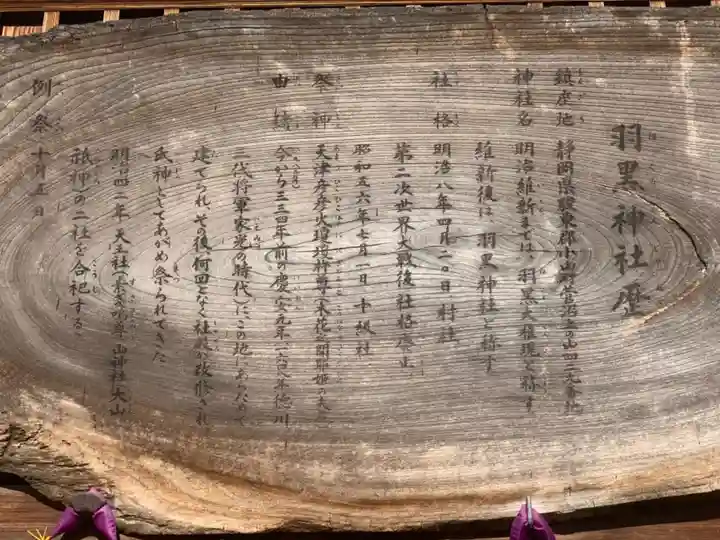 羽黒神社歴
鎮座地 静岡県駿東郡小山町菅沼上の山四二九番地
神社名 明治維新までは、羽黒大権現と称す
維新後は、羽黒神社と称す
社格 明治八年四月二〇日 村社
第二次世界大戦後社格廃止
昭和五六年七月一日 十級社
祭神 天津彦彦火瓊瓊杵尊(木花之開耶姫の夫)
由緒 今から三三四年前の慶安元年(一六四八年徳川
三代将軍家光の時代)に、この地にあらためて
建てられ、その後、何回となく社殿が改修され
氏神としてあがめ祭られてきた
明治四一年 天王社(素戔嗚尊)山神社(大山
祇神)の二社を合祀する
例祭 十月五日